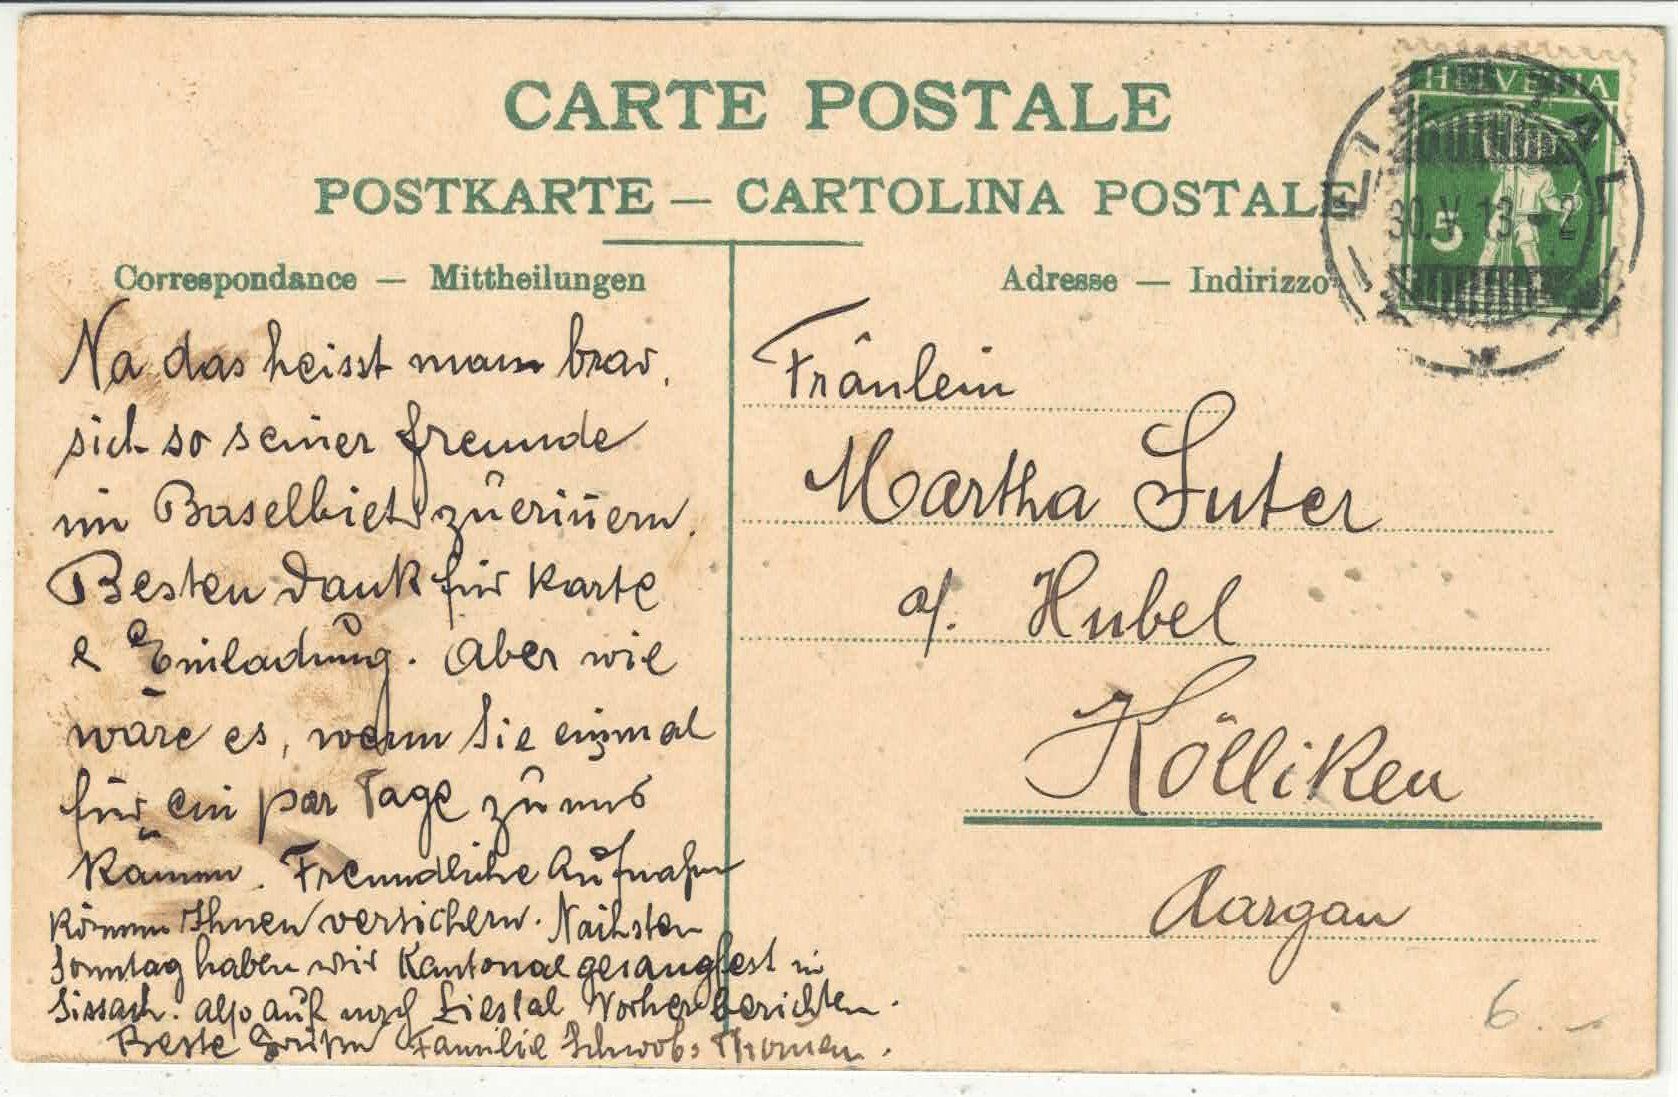 CARTE POSTALE
POSTKARTE — CARTOLINA POSTALE
Correspondance — Mittheilungen
Adresse — Indirizzo
HELVETIA
5
LIESTAL
30.V.13.-2
Na das heisst man brav,
sich so seiner freunde
im Baselbiet zu erinnern.
Besten Dank für Karte
& Einladung. Aber wie
wäre es, wenn Sie einmal
für ein par Tage zu uns
kämen. Freundliche Aufnahm
können Ihnen versichern. Nächsten
Sonntag haben wir Kantonalgesangfest in
Sissach. Also auf nach Liestal Vorher berichten.
Beste Grüsse Familie Schwob-Thomen.
Fräulein
Martha Suter
a/. Hubel
Kölliken
Aargau
6.-